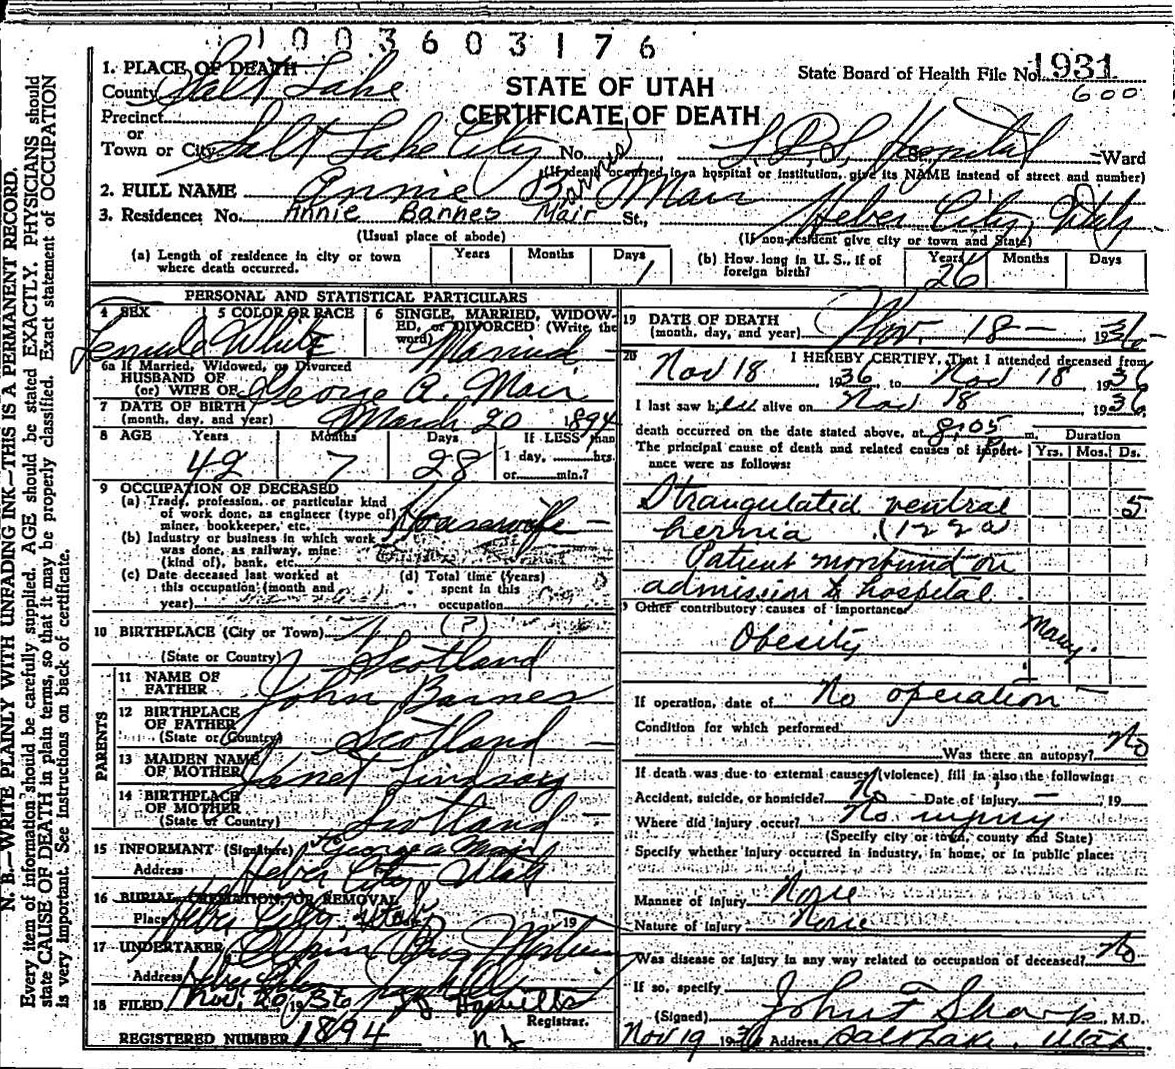 1003603176
1. PLACE OF DEATH
County Salt Lake
STATE OF UTAH
CERTIFICATE OF DEATH
State Board of Health File No. 1931
600
Precinct
or
Town or City Salt Lake City No. L.D.S. Hospital St., Ward
(If death occurred in a hospital or institution, give its NAME instead of street and number)
2. FULL NAME Annie Barnes Mair
3. Residence: No. Annie Barnes Mair St., Heber City, Utah
(Usual place of abode) (If non-resident give city or town and State)
(a) Length of residence in city or town where death occurred. Years Months Days 1
(b) How long in U. S., if of foreign birth? Years 26 Months Days
PERSONAL AND STATISTICAL PARTICULARS
4 SEX Female
5 COLOR OR RACE White
6 SINGLE, MARRIED, WIDOWED, or DIVORCED (Write the word) Married
6a If Married, Widowed, or Divorced
HUSBAND OF
(or) WIFE OF George A. Mair
7 DATE OF BIRTH
(month, day, and year) March 20 1894
8 AGE Years Months Days If LESS than
42 7 28 1 day, hrs.
or min.?
9 OCCUPATION OF DECEASED
(a) Trade, profession, or particular kind
of work done, as engineer (type of)
miner, bookkeeper, etc. Housewife
(b) Industry or business in which work
was done, as railway, mine
(kind of), bank, etc.
(c) Date deceased last worked at
this occupation (month and
year)
(d) Total time (years)
spent in this
occupation
10 BIRTHPLACE (City or Town) (?)
(State or Country) Scotland
PARENTS
11 NAME OF
FATHER John Barnes
12 BIRTHPLACE
OF FATHER
(State or Country) Scotland
13 MAIDEN NAME
OF MOTHER Janet Lindsay
14 BIRTHPLACE
OF MOTHER
(State or Country) Scotland
15 INFORMANT (Signature) George A Mair
Address Heber City Utah
16 BURIAL, CREMATION, OR REMOVAL
Place Heber City, Utah 19
17 UNDERTAKER Bros
Address Heber City
18 FILED Nov. 20 1936
Registrar.
REGISTERED NUMBER 1894
19 DATE OF DEATH
(month, day, and year) Nov. 18 - 1936
20 I HEREBY CERTIFY, That I attended deceased from
Nov 18 1936 to Nov 18 1936
I last saw her alive on Nov 18 1936
death occurred on the date stated above, at 8:05 p m.
The principal cause of death and related causes of importance were as follows:
Duration
Yrs. Mos. Ds.
Strangulated ventral 5
hernia (122a
Patient moribund on
admission to hospital
Other contributory causes of importance
Obesity Many.
If operation, date of No operation
Condition for which performed
Was there an autopsy? No
If death was due to external causes (violence) fill in also the following:
Accident, suicide, or homicide? No Date of injury — 19
Where did injury occur? No injury
(Specify city or town, county and State)
Specify whether injury occurred in industry, in home, or in public place:
Manner of injury None
Nature of injury None
Was disease or injury in any way related to occupation of deceased? No
If so, specify
(Signed) John F Sharp M.D.
Nov 19 1936 Address Salt Lake, Utah
N. B.—WRITE PLAINLY WITH UNFADING INK—THIS IS A PERMANENT RECORD.
Every item of information should be carefully supplied. AGE should be stated EXACTLY. PHYSICIANS should
state CAUSE OF DEATH in plain terms, so that it may be properly classified. Exact statement of OCCUPATION
is very important. See instructions on back of certificate.